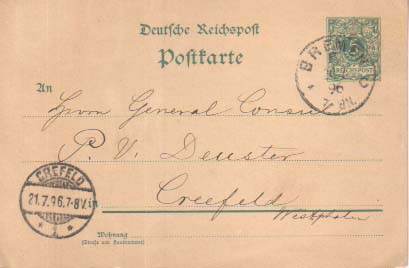 Deutsche Reichspost
Postkarte
5
REICHSPOST
BREMEN
96
An
Herrn General Consul
P. V. Deuster
Creefeld
Westphalen
CREFELD
21.7.96.7-8V.
1
in
Wohnung
(Straße und Hausnummer)